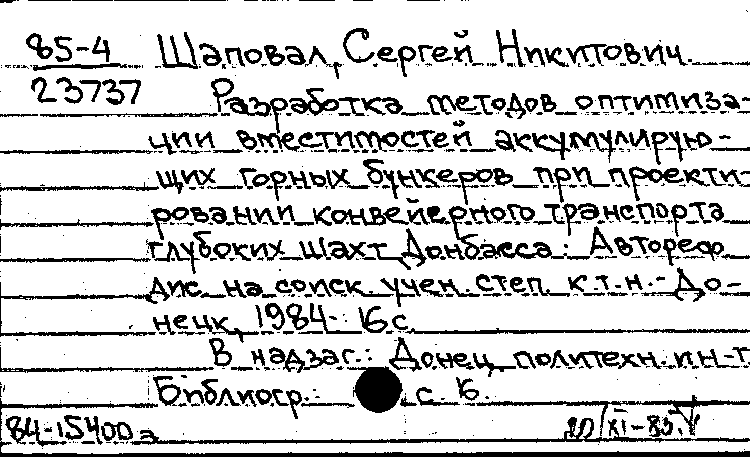 85-4 Шаповал, Сергей Никитович.
23737 Разработка методов оптимиза-
ции вместимостей аккумулирую-
щих горных бункеров при проекти-
ровании конвейерного транспорта
глубоких шахт Донбасса: Автореф.
дис. на соиск. учен. степ. к.т.н. - До-
нецк, 1984. - 16 с.
В надзаг.: Донец. политехн. ин-т
Библиогр.: с. 16.
84-15400а 20/XI-85.